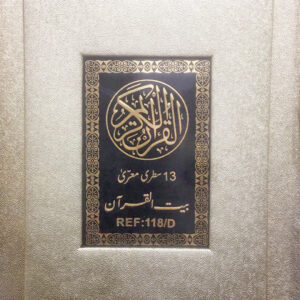 القرآن الكريم
13 سطری معریٰ
بیت القرآن
REF:118/D